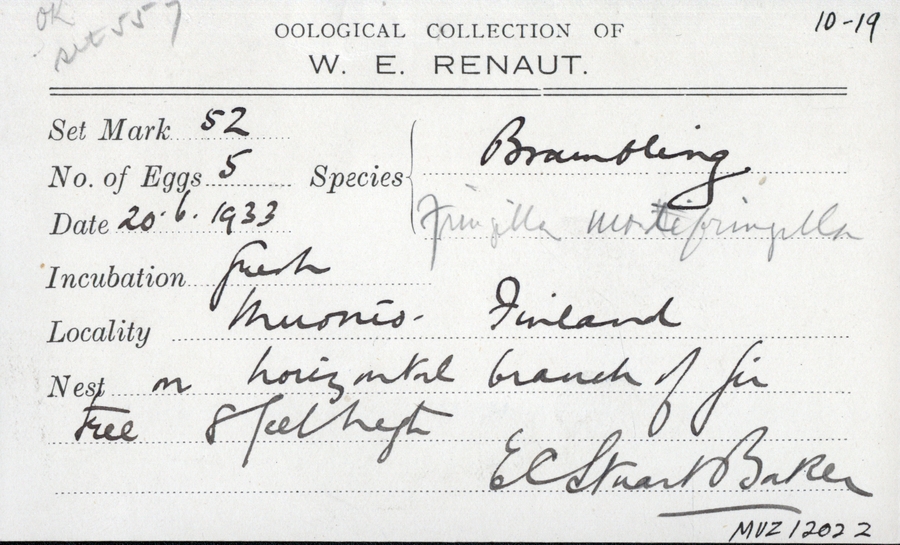 OK
set 557
10-19
OOLOGICAL COLLECTION OF
W. E. RENAUT.
Set Mark 52
No. of Eggs 5
Species Brambling
Date 20.6.1933
Fringilla montifringilla
Incubation fresh
Locality Muonio. Finland
Nest on horizontal branch of fir
tree 8 feet height
EC Stuart Baker
MVZ 12022